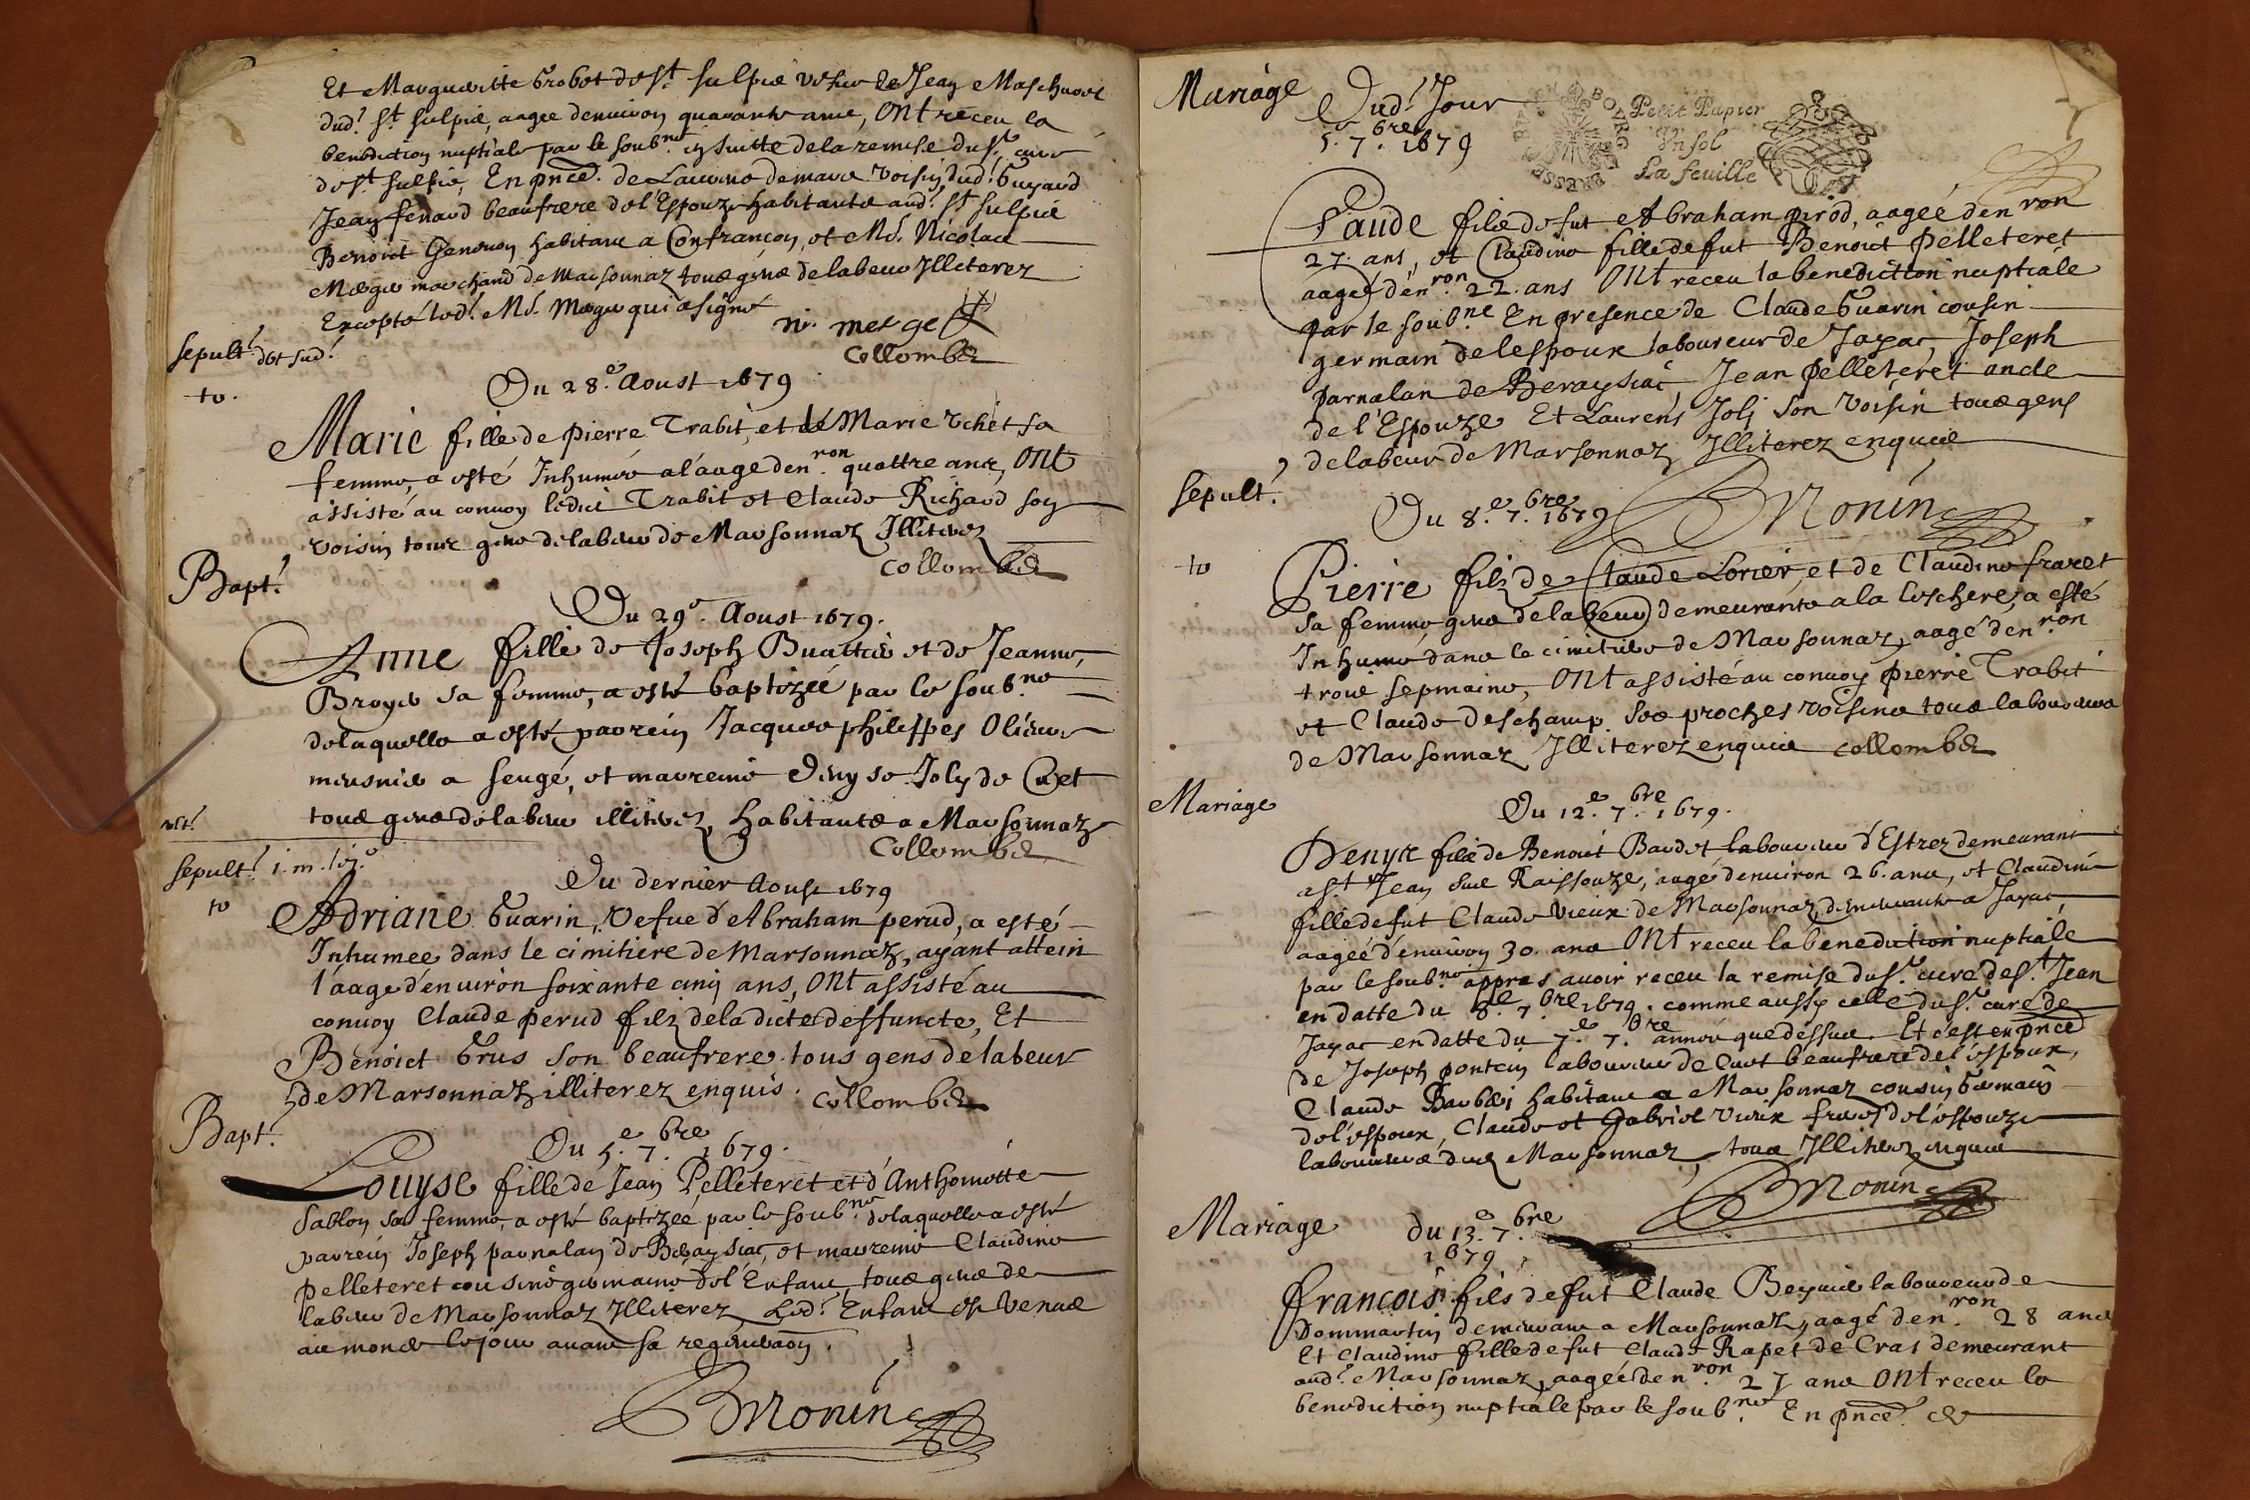 Et Margueritte Grobot de St. Sulpié vefve de Jean
dud.t St. Sulpié, aagée denuiron quarante ans, ONt receu la
benediction nuptiale par le soub.né en suitte de la remise du Sr. curé
de St Sulpié, En pnce. de Laurens demare voisin dud.
Jean fenaud beaufrere de l'Espouze habitants aud.t St Sulpié
Benoict habitant a Confrancon, et Md. Nicolas
marchand de Marsonnaz tous gens de labeur Illiterez
Excepté led.t Md. qui a signé
n. merge
Collombet
Sepult.
to.
Du 28.e Aoust 1679
Marie fille de pierre Trabit, et de Marie vchet sa
femme, a esté Inhumée a l'aage den.ron quattre ans, ONt
assisté au convoy ledict Trabit et Claude Richard son
voisin tous gens de labeur de Marsonnaz Illiterez
Collombet
Bapt.
Du 29.e Aoust 1679.
Anne fille de Joseph Buattier et de Jeanne
Broyer sa femme, a esté baptizée par le soub.né
de laquelle a esté parrein Jacques philippes Olieur
meusnier a Sengé, et marreine Denyse Joly de Curt
tous gens de labeur illiterez, habitants a Marsonnaz
Collombet
Sepult.
to
Du dernier Aoust 1679
Adriane Guarin, Vefue d'Abraham perud, a esté
Inhumée dans le cimitiere de Marsonnaz, ayant attein
l'áage d'énuiron soixante cinq ans, ONt assisté au
conuoy Claude perud filz de la dicte deffuncte, Et
Benoict Grus son beaufrere tous gens de labeur
de Marsonnaz illiterez enquis. Collombet
Bapt.
Du 5.e 7.bre 1679.
Louyse fille de Jean Pelleteret et d'Anthoinette
Sablon sa femme, a esté baptizée par le soub.né de laquelle a esté
parrein Joseph parnalan de Béraysiac, et marreine Claudine
pelleteret cousine germaine de l'Enfant, tous gens de
labeur de Marsonnaz Illiterez, Led.t Enfant est venue
au monde le jour auant sa regeneraon.
BMonin
Mariage
Dud.t Jour
5.e 7.bre 1679
Petit Papier
Vn sol
La feuille
Claude filz de fut Abraham pirod, aagée den.ron
27. ans, et Claudine fille de fut Benoict pelleteret
aagée dén.ron 22. ans ONt receu la benediction nuptiale
par le soub.né En presence de Claude Guarin cousin
germain de lespoux laboureur de Jayac, Joseph
parnalan de Béraysiac, Jean pelleteret oncle
de l'Espouze Et Laurens Joli son voisin tous gens
de labeur de Marsonnaz Illiterez enquis
BMonin
Sepult.
to
Du 8.e 7.bre 1679
Pierre filz de Claude Lorier, et de Claudine fraret
sa femme gens de labeur demeurants a la Leschere, a esté
Inhumé dans le cimitiere de Marsonnaz, aagé den.ron
trois sepmaine, ONt assisté au conuoy pierre Trabit
et Claude deschamp ses proches voisins tous laboureurs
de Marsonnaz Illiterez enquis Collombet
Mariage
Du 12.e 7.bre 1679.
Denys filz de Benoict Baudet laboureur d'Estrez demeurant
a St Jean sur Raissouze, aagé denuiron 26. ans, et Claudine
fille de fut Claude Vieux de Marsonnaz, demeurante a Jayac,
aagée d'énuiron 30. ans ONt receu la benediction nuptiale
par le soub.né appres auoir receu la remise du Sr. curé de St Jean
en datte du 8.e 7.bre 1679. comme aussy celle du Sr. curé de
Jayac en datte du 7.e 7.bre année que dessus. Et c'est en pnce
de Joseph pontcin laboureur de Curt beaufrere de l'éspoux,
Claude Barbery habitant a Marsonnaz cousin Germain
de l'éspoux, Claude et Gabriel Vieux freres de l'éspouze
laboureurs dud.t Marsonnaz, tous Illiterez enquis
BMonin
Mariage
du 13.e 7.bre
1679.
François fils de fut Claude laboureur de
Dommartin demeurant a Marsonnaz, aagé den.ron 28 ans
Et Claudine fille de fut Claude Rapet de Cras demeurant
aud.t Marsonnaz, aagée den.ron 27 ans ONt receu la
benediction nuptiale par le soub.né En pnce de